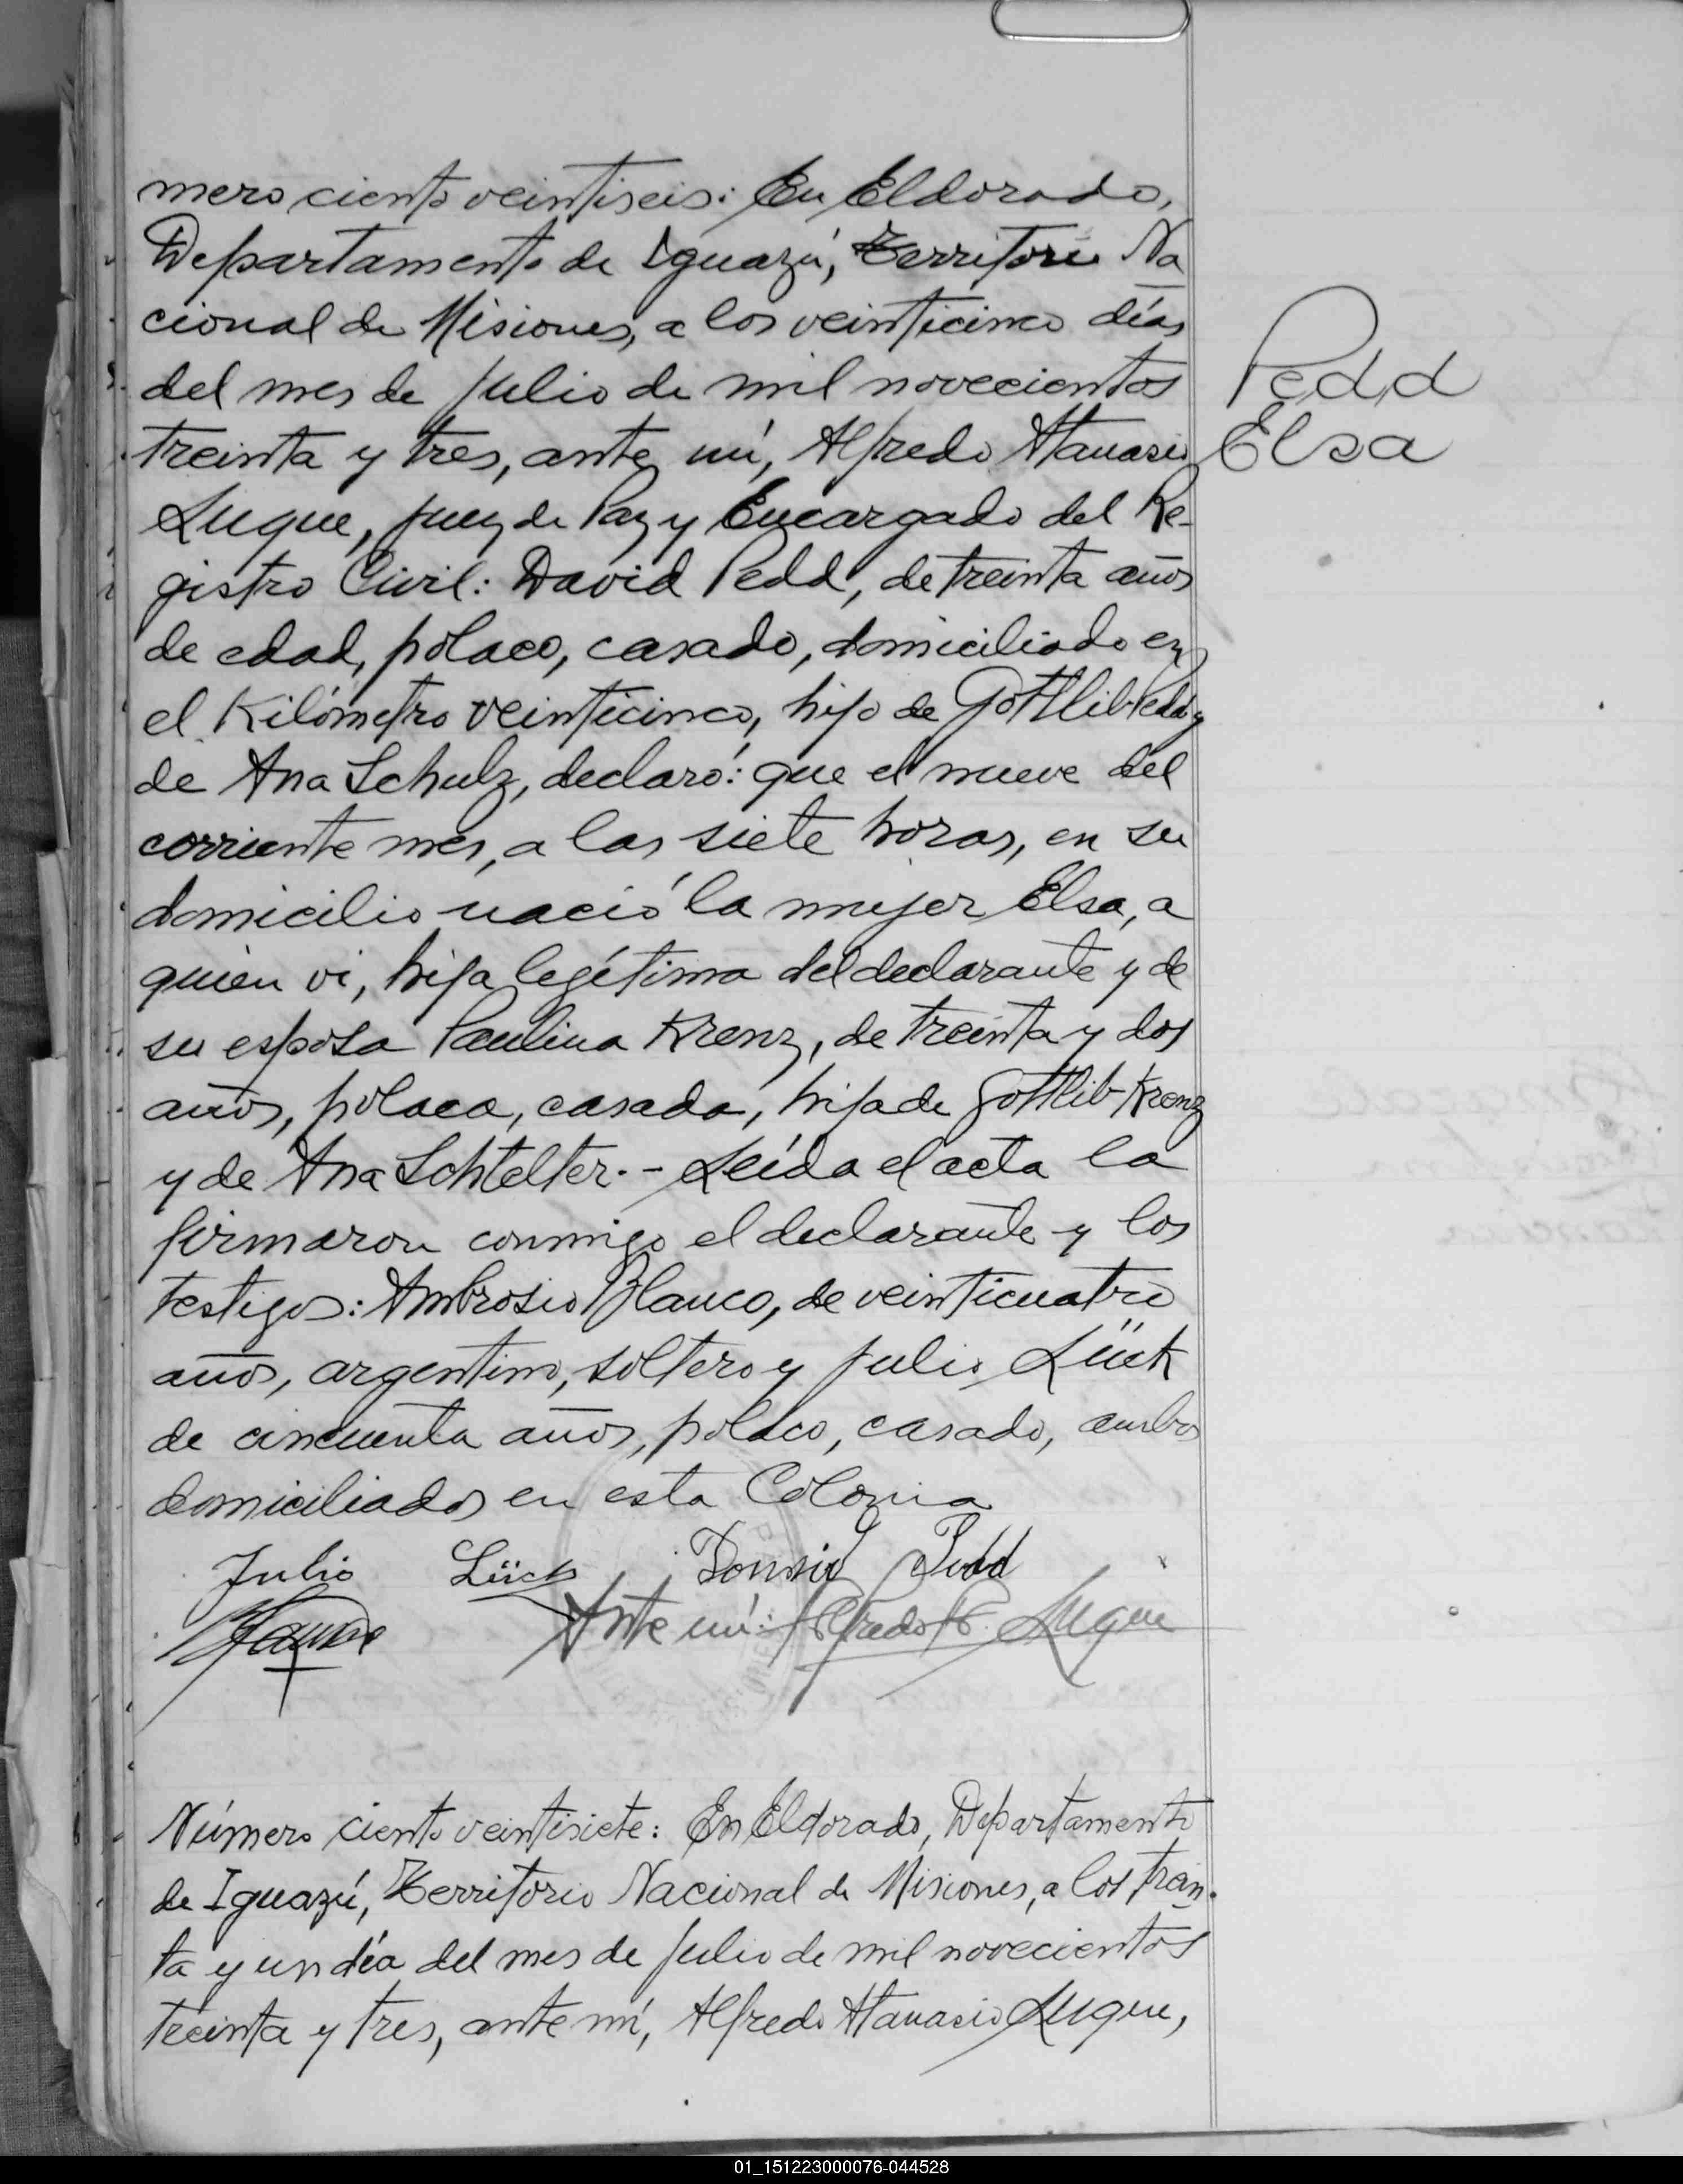 mero ciento veintiseis: En Eldorado,
Departamento de Iguazú, Territorio Na
cional de Misiones, a los veinticinco días
del mes de julio de mil novecientos
treinta y tres, ante mí, Alfredo Atanasio
Luque, juez de Paz y Encargado del Re-
gistro Civil: David Pedd, de treinta años
de edad, polaco, casado, domiciliado en
el Kilómetro veinticinco, hijo de Gottlib Pedd y
de Ana Schulz, declaró: que el nueve del
corriente mes, a las siete horas, en su
domicilio nació la mujer Elsa, a
quien vi, hija legítima del declarante y de
su esposa Paulina Krenz, de treinta y dos
años, polaca, casada, hija de Gottlib Krenz
y de Ana Schtelter.- Leída el acta la
firmaron conmigo el declarante y los
testigos: Ambrosio Blanco, de veinticuatro
años, argentino, soltero y Julio Lück
de cincuenta años, polaco, casado, ambos
domiciliados en esta Colonia
Julio Lück Pedd
Ante mí: Alfredo A. Luque
Pedd
Elsa
Número ciento veintisiete: En Eldorado, Departamento
de Iguazú, Territorio Nacional de Misiones, a los trein-
ta y un día del mes de julio de mil novecientos
treinta y tres, ante mí, Alfredo Atanasio Luque,
01_151223000076-044528